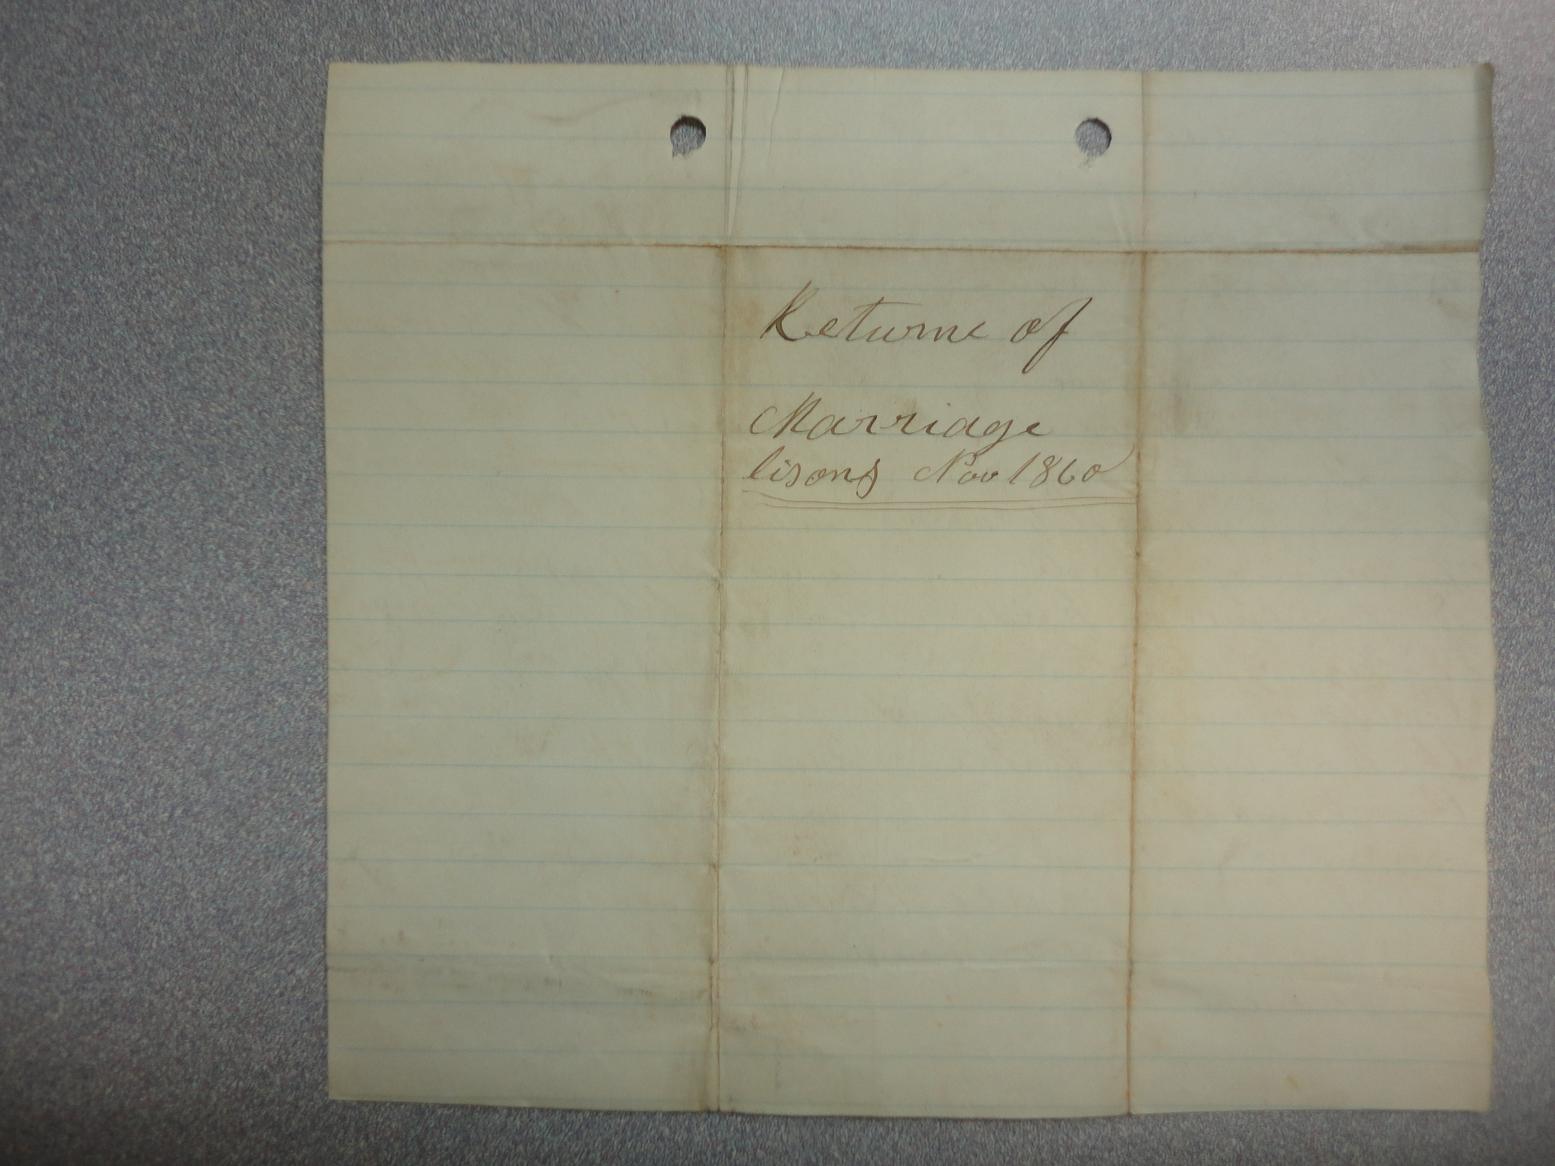 Returne of
Marriage
lisons Nov 1860